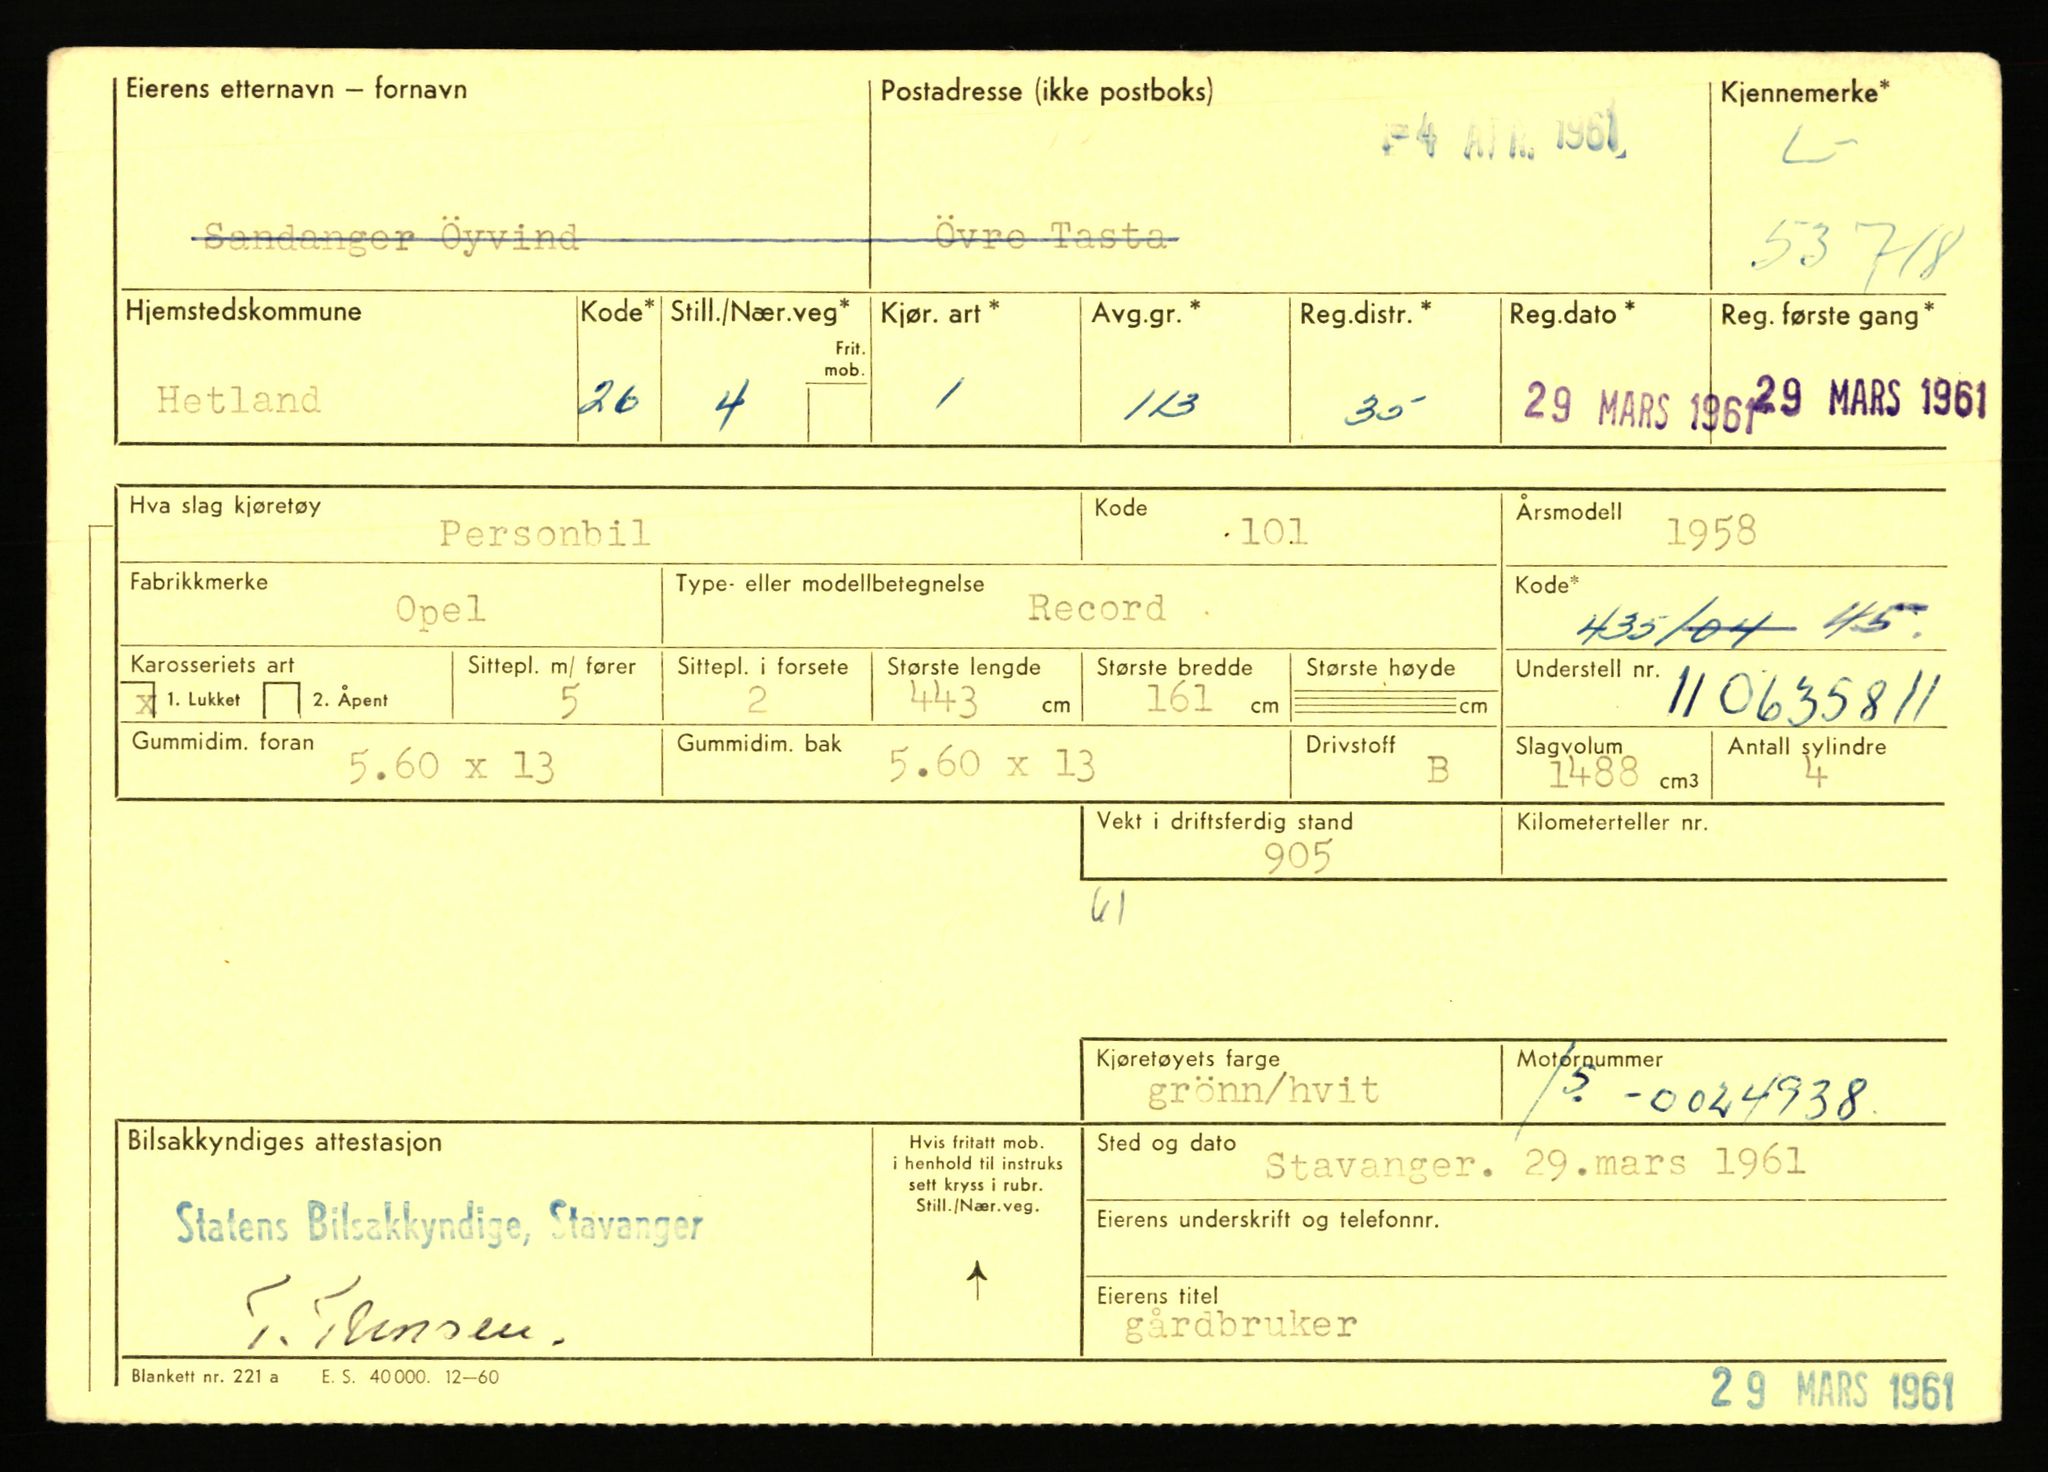 Eierens etternavn – fornavn Postadresse (ikke postboks) Kjennemerke*
-4 APR. 1961 L-
Sandanger Öyvind Övre Tasta 53718
Hjemstedskommune Kode* Still./Nær.veg* Kjør. art* Avg.gr.* Reg.distr.* Reg.dato* Reg. første gang*
Frit.
mob.
Hetland 26 4 1 113 35 29 MARS 1961 29 MARS 1961
Hva slag kjøretøy Kode Årsmodell
Personbil 101 1958
Fabrikkmerke Type- eller modellbetegnelse Kode*
Opel Record 435/04 45.
Karosseriets art Sittepl. m/ fører Sittepl. i forsete Største lengde Største bredde Største høyde Understell nr.
x 1. Lukket 2. Åpent 5 2 443 cm 161 cm cm 110635811
Gummidim. foran Gummidim. bak Drivstoff Slagvolum Antall sylindre
5.60 x 13 5.60 x 13 B 1488 cm3 4
Vekt i driftsferdig stand Kilometerteller nr.
905
61
Kjøretøyets farge Motornummer
grönn/hvit 15. -0024938.
Bilsakkyndiges attestasjon Hvis fritatt mob.
i henhold til instruks
sett kryss i rubr.
Still./Nær.veg.
Sted og dato
Stavanger. 29.mars 1961
Statens Bilsakkyndige, Stavanger
Eierens underskrift og telefonnr.
T.
Eierens titel
gårdbruker
Blankett nr. 221 a E. S. 40 000. 12–60
29 MARS 1961